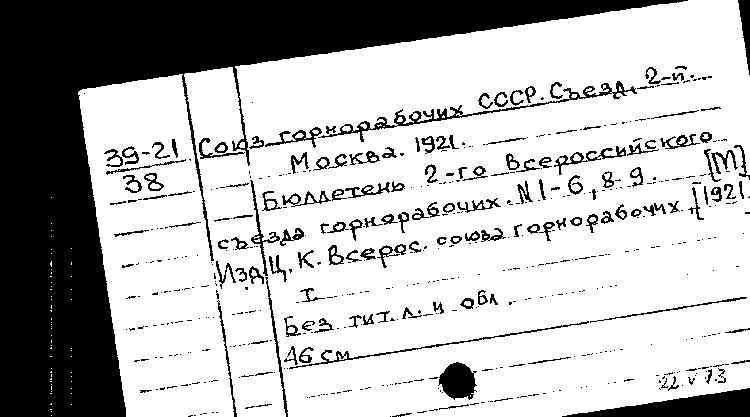 39-21 Союз горнорабочих СССР. Съезд, 2-й.
38 Москва. 1921.
Бюллетень 2-го Всероссийского
съезда горнорабочих. N 1-6, 8-9. [М]
Изд. Ц. К. Всерос. союза горнорабочих, [1921.
т.
Без тит. л. и обл.
46 см
22 V 73